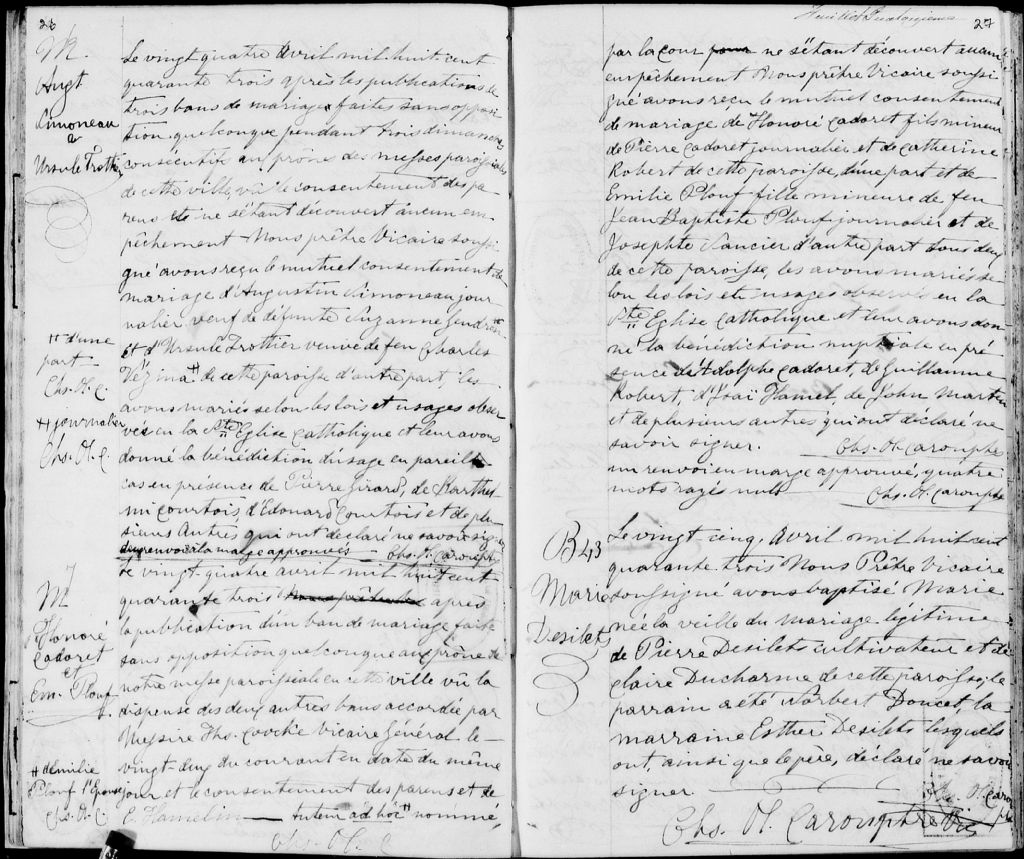 26
M.
Augt
Simoneau
&
Ursule Trottier
Le vingt quatre Avril mil huit cent
quarante trois après les publications de
trois bans de mariage faites sans opposi
tion quelconque pendant trois dimanches
consécutifs au prône des messes paroissiales
de cette ville, vû le consentement des pa
rens ne s'étant découvert aucun em
pêchement Nous prêtre Vicaire soussi
gné avons reçu le mutuel consentement de
mariage d'Augustin Simoneau jour
nalier veuf de défunte Suzanne Gendron
et d'Ursule Trottier veuve de feu Charles
Vézina # de cette paroisse d'autre part, les
avons mariés selon les lois et usages obser
vés en la Ste Eglise Catholique et leur avons
donné la bénédiction d'usage en pareil
cas en présence de Pierre Girard, de Barthel
mi Courtois d'Edouard Courtois et de plu
sieurs autres qui ont déclaré ne savoir signer
deux renvois à la marge approuvés — Chs. H. Carouphe
# d'une
part
Chs. H. C.
# journalier
Chs. H. C
M
Honoré
Cadoret
et
Em. Plouf
Le vingt quatre avril mil huit cent
quarante trois après
la publication d'un ban de mariage faite
sans opposition quelconque au prône de
notre messe paroissiale en cette ville vû la
dispense des deux autres bans accordée par
Messire Ths. Cooke Vicaire Général le
vingt deux du courant en date du même
jour et le consentement des parens et de
E. Hamelin — tuteur ad hoc nommé,
Chs. H. C
# d'Emilie
Plouf l'Epouse
Chs. H. C
Feuillet Quatorzième
27
par la cour ne s'étant découvert aucun
empêchement Nous prêtre Vicaire soussi
gné avons reçu le mutuel consentement
de mariage de Honoré Cadoret fils mineur
de Pierre Cadoret journalier et de Catherine
Robert de cette paroisse, d'une part et de
Emilie Plouf fille mineure de feu
Jean Baptiste Plouf journalier et de
Josephte Vancier d'autre part tous deux
de cette paroisse, les avons mariés se
lon les lois et usages observés en la
Ste Eglise Catholique et leur avons don
né la bénédiction nuptiale en pré
sence de Adolphe Cadoret, de Guillaume
Robert, d'Isaï Hamel, de John Marten
et de plusieurs autres qui ont déclaré ne
savoir signer.
Chs. H. Carouphe
un renvoi en marge approuvé, quatre
mots rayés nuls
Chs. H. Carouphe
B 43
Marie
Desilets
Le vingt cinq Avril mil huit cent
quarante trois Nous Prêtre Vicaire
soussigné avons baptisé Marie
née la veille du mariage légitime
de Pierre Desilets cultivateur et de
Claire Ducharme de cette paroisse; le
parrain a été Norbert Doucet, la
marraine Esther Desilets lesquels
ont, ainsi que le père, déclaré ne savoir
signer
Chs. H. Carouphe Vic